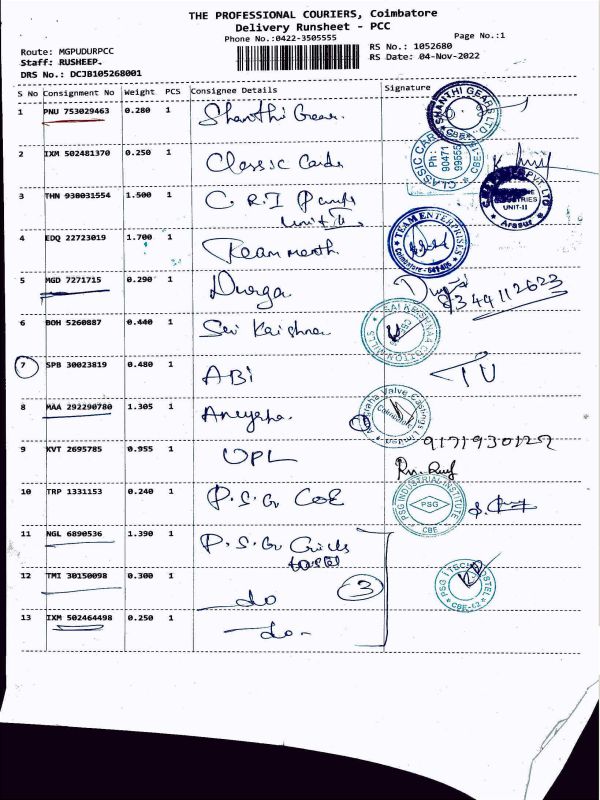 THE PROFESSIONAL COURIERS, Coimbatore
Delivery Runsheet - PCC
Phone No.:0422-3505555
Page No.:1
Route: MGPUDURPCC
RS No.: 1052680
Staff: RUSHEEP.
RS Date: 04-Nov-2022
DRS No.: DCJB105268001
S No Consignment No Weight PCS Consignee Details Signature
1 PNU 753029463 0.280 1 Shanthi Gear.
SHANTHI GEARS LTD
2 IXM 502481370 0.250 1 Classic Cards
CLASSIC CAR
Ph: 90471
99555
CBE
3 THN 930031554 1.500 1 C.R.I Pumps
unit II
PVT LTD
UNIT-II
Arasur
4 EDQ 22723019 1.700 1
TEAM ENTERPRISES
Coimbatore - 641
5 MGD 7271715 0.290 1 Durga
6 BOH 5260887 0.440 1 Sai Krishna
SAI KRISHNAA COTTON MILLS
7 SPB 30023819 0.480 1 ABI
8 MAA 292290780 1.305 1
Valve Castings Limited
Coimbatore
9 KVT 2695785 0.955 1 UPL
10 TRP 1331153 0.240 1 P.S.G COE
PSG INDUSTRIAL INSTITUTE
PSG
CBE
11 NGL 6890536 1.390 1 P.S.G Girls
hostel
12 TMI 30150098 0.300 1 do
3
PSG TECH HOSTEL
13 IXM 502464498 0.250 1 do